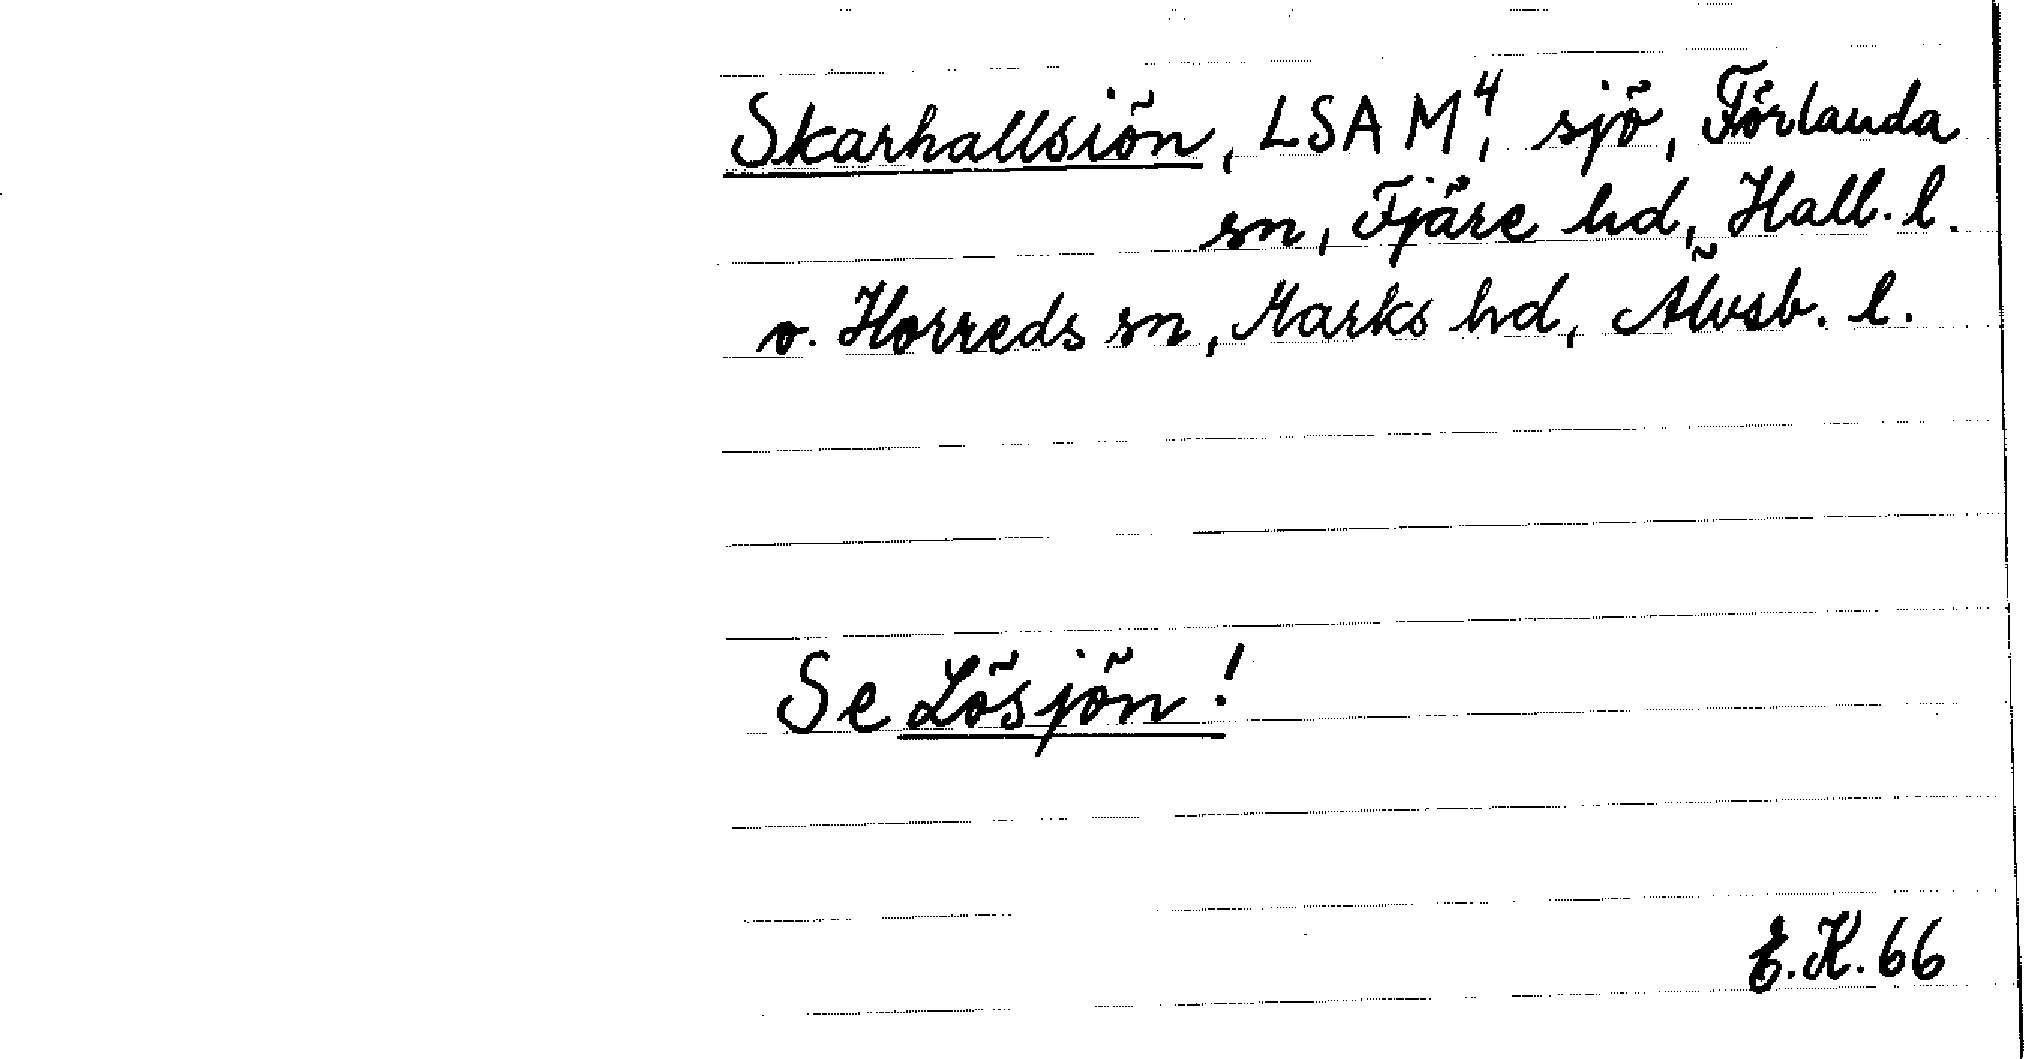 Skarhallsiön, LSA M4, sjö, Förlanda
sn, Fjäre hd, Hall. l.
o. Horreds sn, Marks hd, Älvsb. l.
Se Lösjön!
E.K. 66